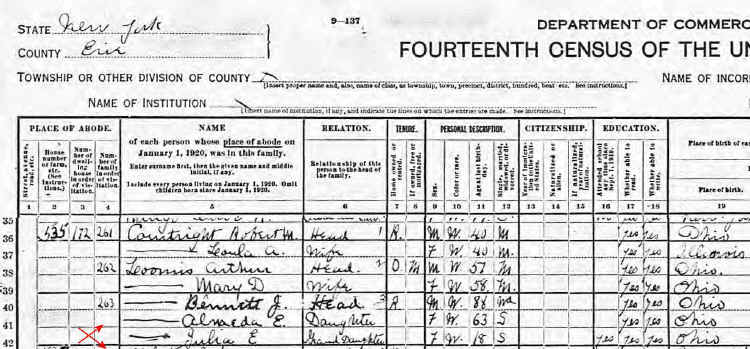 STATE New York
9-137
DEPARTMENT OF COMMERC
COUNTY Erie
FOURTEENTH CENSUS OF THE UN
TOWNSHIP OR OTHER DIVISION OF COUNTY
[Insert proper name and, also, name of class, as township, town, precinct, district, hundred, beat, etc. See instructions.]
NAME OF INCOR
NAME OF INSTITUTION
[Insert name of institution, if any, and indicate the lines on which the entries are made. See instructions.]
PLACE OF ABODE. NAME RELATION. TENURE. PERSONAL DESCRIPTION. CITIZENSHIP. EDUCATION.
of each person whose place of abode on
January 1, 1920, was in this family.
Enter surname first, then the given name and middle
initial, if any.
Include every person living on January 1, 1920. Omit
children born since January 1, 1920.
Relationship of this
person to the head of
the family.
Street, avenue, road, etc.
House number or farm, etc. (See instructions.)
Number of dwelling house in order of visitation.
Number of family in order of visitation.
Home owned or rented.
If owned, free or mortgaged.
Sex.
Color or race.
Age at last birthday.
Single, married, widowed, or divorced.
Naturalized or alien.
If naturalized, year of naturalization.
Attended school any time since Sept. 1, 1919.
Whether able to read.
Whether able to write.
Place of birth of each
Place of birth.
1 2 3 4 5 6 7 8 9 10 11 12 13 14 15 16 17 18 19
35
36 535 172 261 Courtright Robert M. Head 1 R. M W. 40 M yes yes Ohio
37 Leoula A. Wife F W. 40 M. yes yes Illinois
38 262 Loomis Arthur Head. 2 O M M W 57 M. yes yes Ohio.
39 Mary D Wife F W. 58 M. yes yes Ohio
40 263 Bennett J. Head 3 R M W. 88 Wd yes yes Ohio
41 Almeda E. Daughter F W. 63 S yes yes Ohio
42 Julia E Grand Daughter F W. 18 S yes yes yes Ohio